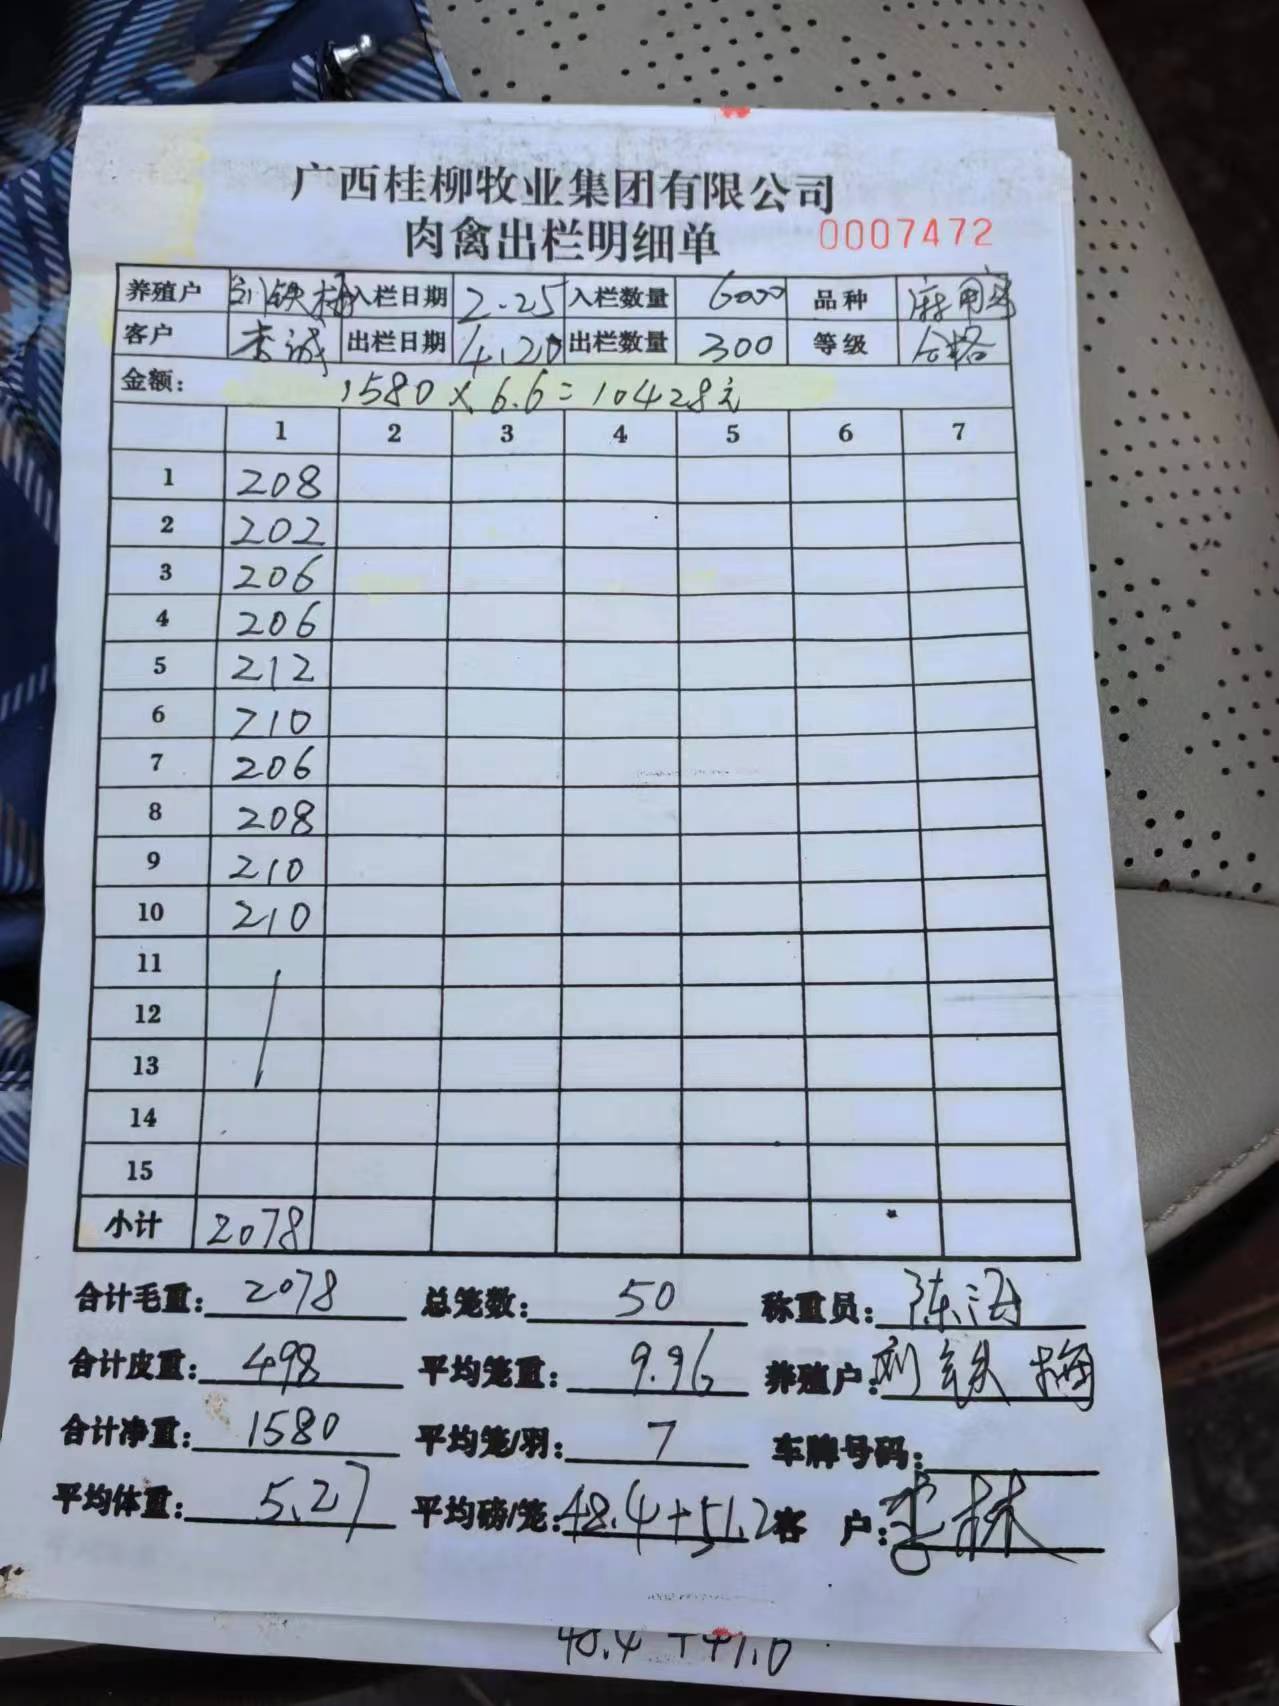 广西桂柳牧业集团有限公司
肉禽出栏明细单 0007472
养殖户 刘铁梅 入栏日期 2.25 入栏数量 6000 品种 麻
客户 李诚 出栏日期 4.20 出栏数量 300 等级 合格
金额: 1580×6.6=10428元
1 2 3 4 5 6 7
1 208
2 202
3 206
4 206
5 212
6 210
7 206
8 208
9 210
10 210
11
12
13
14
15
小计 2078
合计毛重: 2078 总笼数: 50 称重员: 陈海
合计皮重: 498 平均笼重: 9.96 养殖户: 刘铁梅
合计净重: 1580 平均笼/羽: 7 车牌号码:
平均体重: 5.27 平均磅/笼: 48.4+51.2 客户: 李林